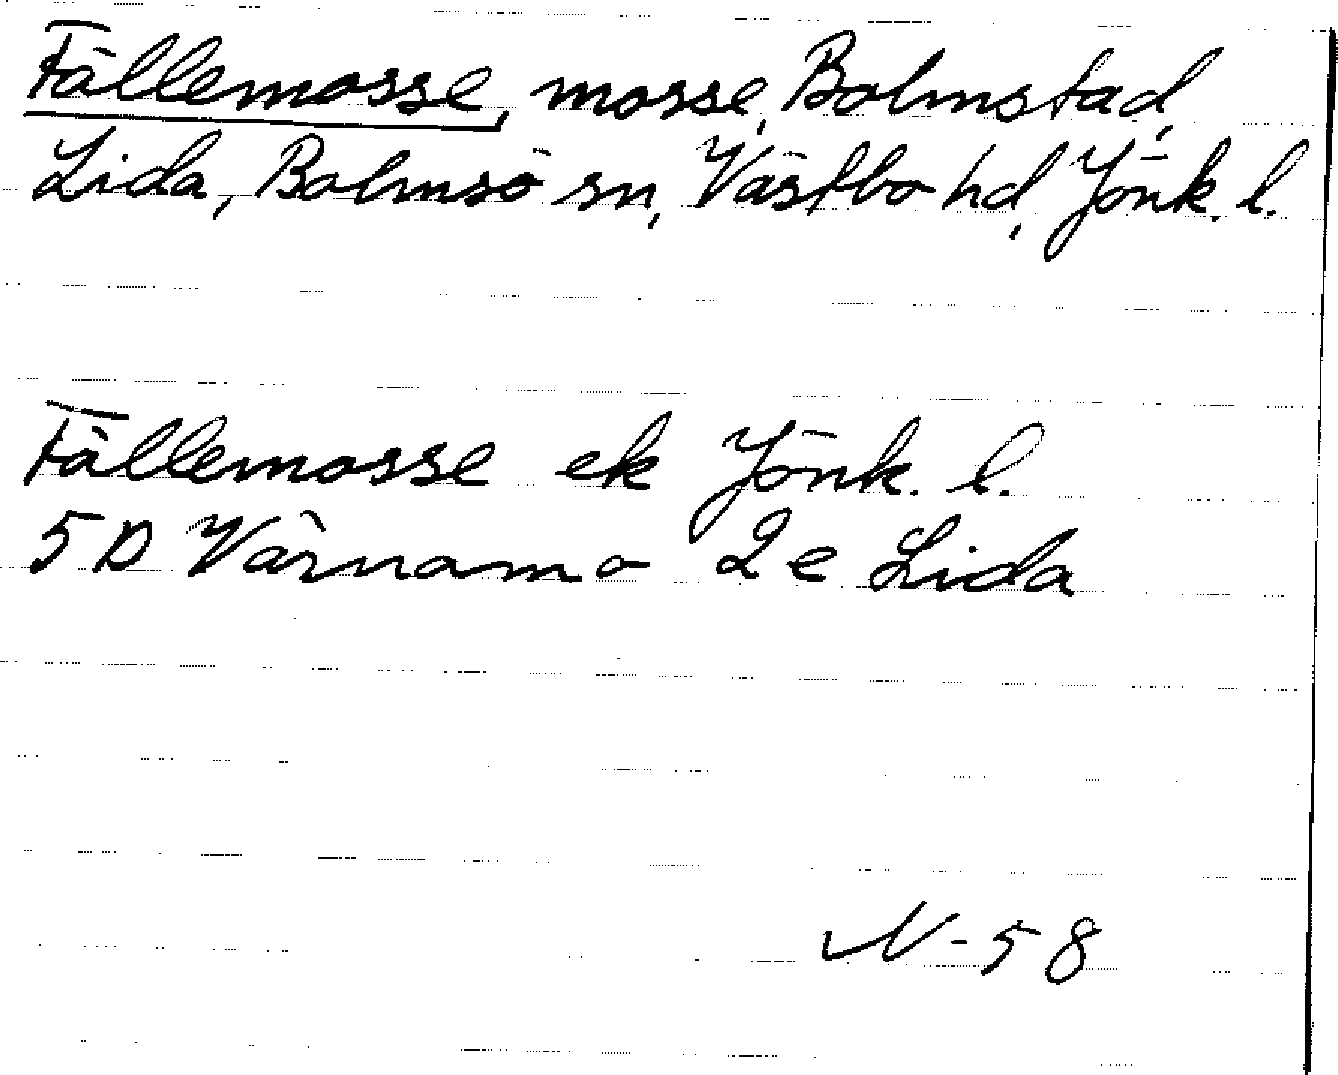 Fällemosse, mosse, Bolmstad,
Lida, Bolmsö sn, Västbo hd, Jönk. l.
Fällemosse ek Jönk. l.
5D Värnamo 2e Lida
N-58